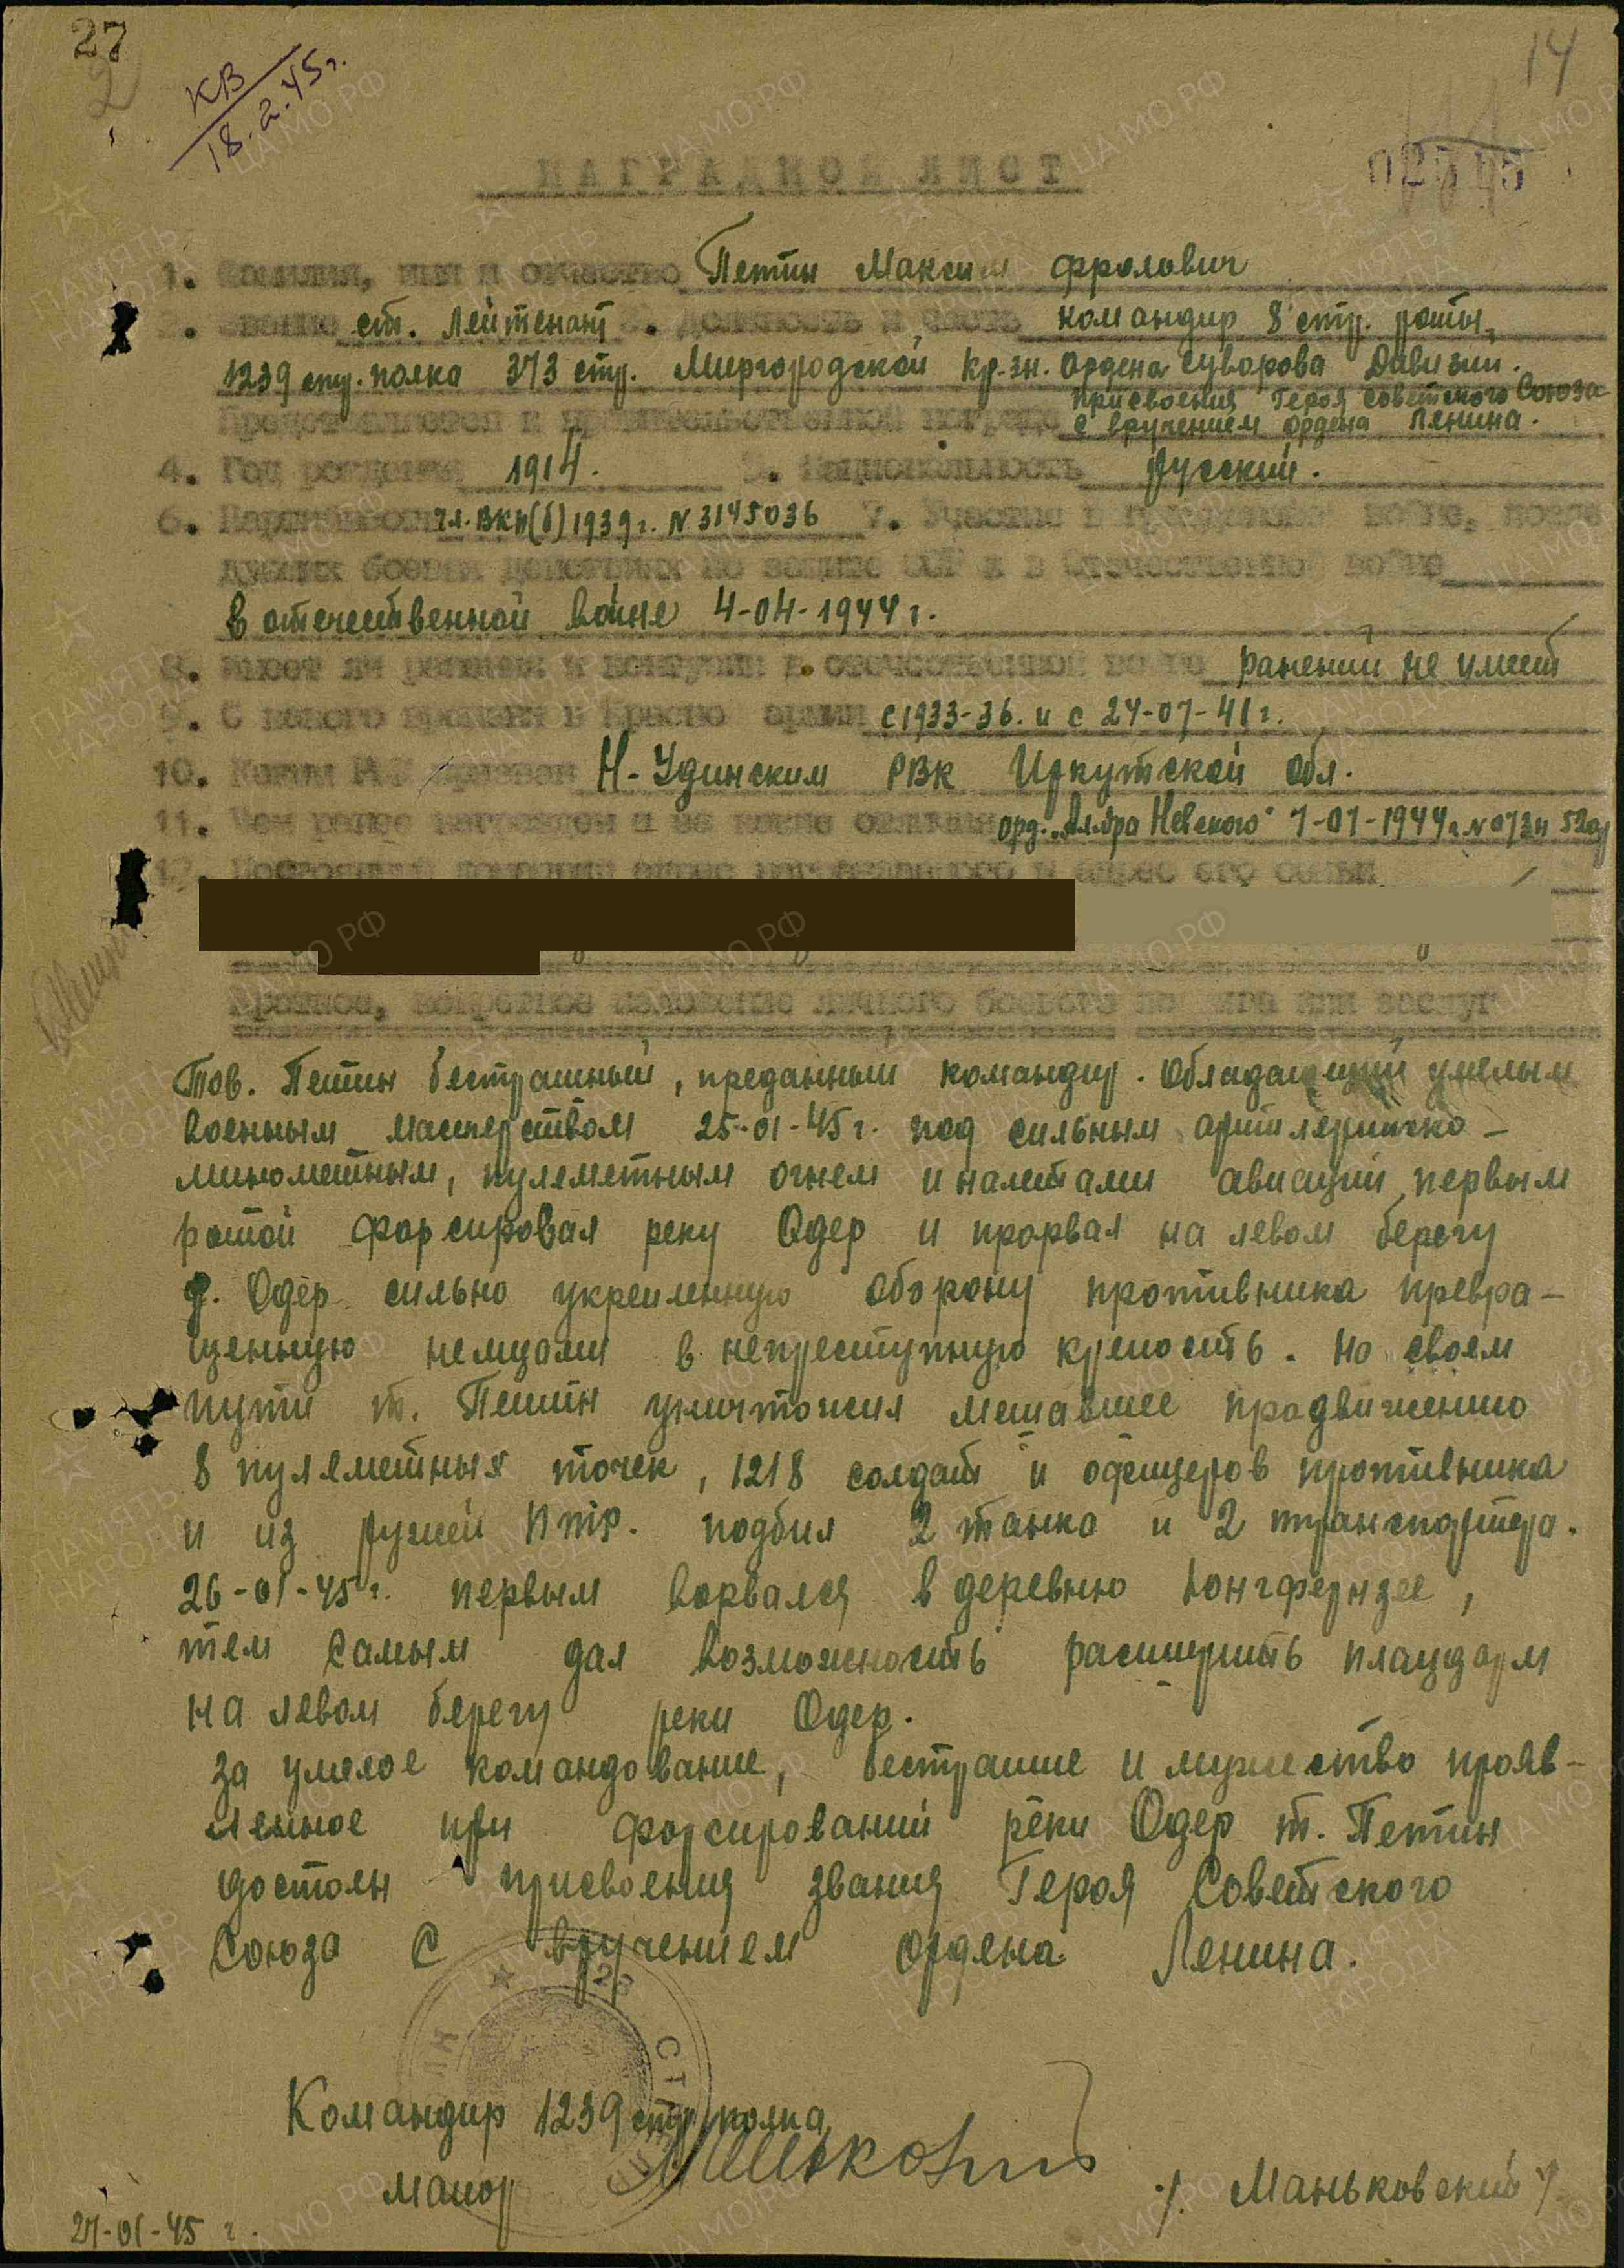 27
14
КВ
18.2.45 г.
НАГРАДНОЙ ЛИСТ
1. Фамилия, имя и отчество Петин Максим Фролович
2. Звание ст. Лейтенант 3. Должность и часть командир 8 стр. роты,
1239 стр. полка 373 стр. Миргородской Кр.зн. Ордена Суворова Дивизии.
присвоения Героя Советского Союза
Представляется к правительственной награде с вручением ордена Ленина.
4. Год рождения 1914. 5. Национальность Русский.
6. Партийность чл. ВКП(б) 1939 г. N 3145036 7. Участие в гражданской войне, после
дующих боевых действиях по защите СССР и в Отечественной войне
в отечественной войне 4-04-1944 г.
8. Имеет ли ранения и контузии в отечественной войне ранений не имеет
9. С какого времени в Красной армии с 1933-36. и с 24-07-41 г.
10. Каким РВК призван Н-Удинским РВК Иркутской обл.
11. Чем ранее награжден и за какие отличия орд. „Ал-дра Невского" 7-07-1944 г. N
12. Постоянный домашний адрес награждаемого и адрес его семьи
Краткое, конкретное изложение личного боевого подвига или заслуг
Тов. Петин бестрашный, преданный командир. Обладающий умелым
военным мастерством 25-01-45 г. под сильным артилерийско-
минометным, пулеметным огнем и налетами авиации первым
ротой форсировал реку Одер и прорвал на левом берегу
р. Одер сильно укрепленную оборону противника превра-
щенную немцами в непреступную крепость. На своем
пути т. Петин уничтожил мешавшее продвижению
8 пулеметных точек, 1218 солдат и офицеров противника
и из ружей ПТР. подбил 2 танка и 2 транспортера.
26-01-45 г. первым ворвался в деревню Юнгфернзее,
тем самым дал возможность расширить плацдарм
на левом берегу реки Одер.
За умелое командование, бестрашие и мужество прояв-
ленное при форсировании реки Одер т. Петин
достоин присвоения звания Героя Советского
Союза с вручением ордена Ленина.
Командир 1239 стр. полка
майор /. Маньковский /.
27-01-45 г.
ПАМЯТЬ НАРОДА
ЦА МО РФ